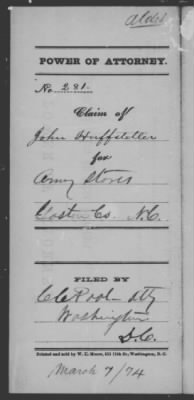 POWER OF ATTORNEY.
No 281.
Claim of
John Huffstetler
for
Army Stores
Gaston Co. N.C.
FILED BY
Washington
D.C.
Printed and sold by W. H. Moore, 511 11th St., Washington, D. C.
March 7/74